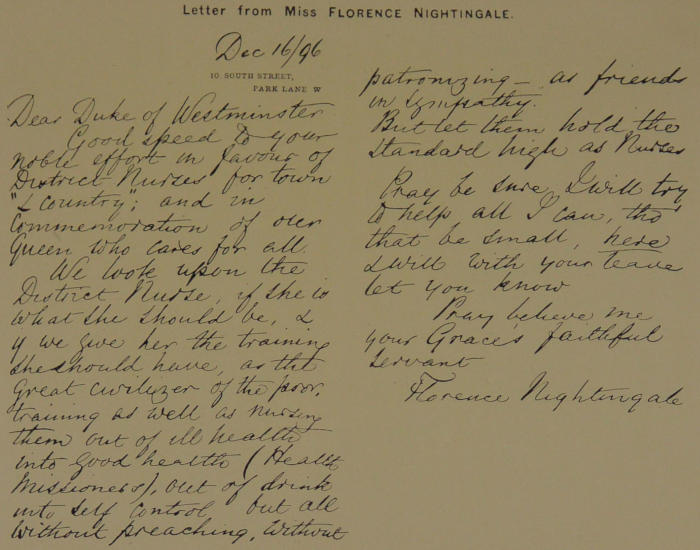 Letter from Miss FLORENCE NIGHTINGALE.
Dec 16/96
10. SOUTH STREET,
PARK LANE W
Dear Duke of Westminster
Good speed to your
noble effort in favour of
District Nurses for town
"& country"; and in
Commemoration of our
Queen who cares for all.
We look upon the
District Nurse, if she is
what she should be, &
if we give her the training
she should have, as the
great civilizer of the poor,
training as well as nursing
them out of ill health
into good health (Health
Missioners), out of drink
into self control but all
without preaching, without
patronizing — as friends
in sympathy.
But let them hold the
standard high as Nurses
Pray be sure I will try
to help all I can, tho'
that be small, here
I will with your leave
let you know
Pray believe me
your Grace's faithful
servant
Florence Nightingale